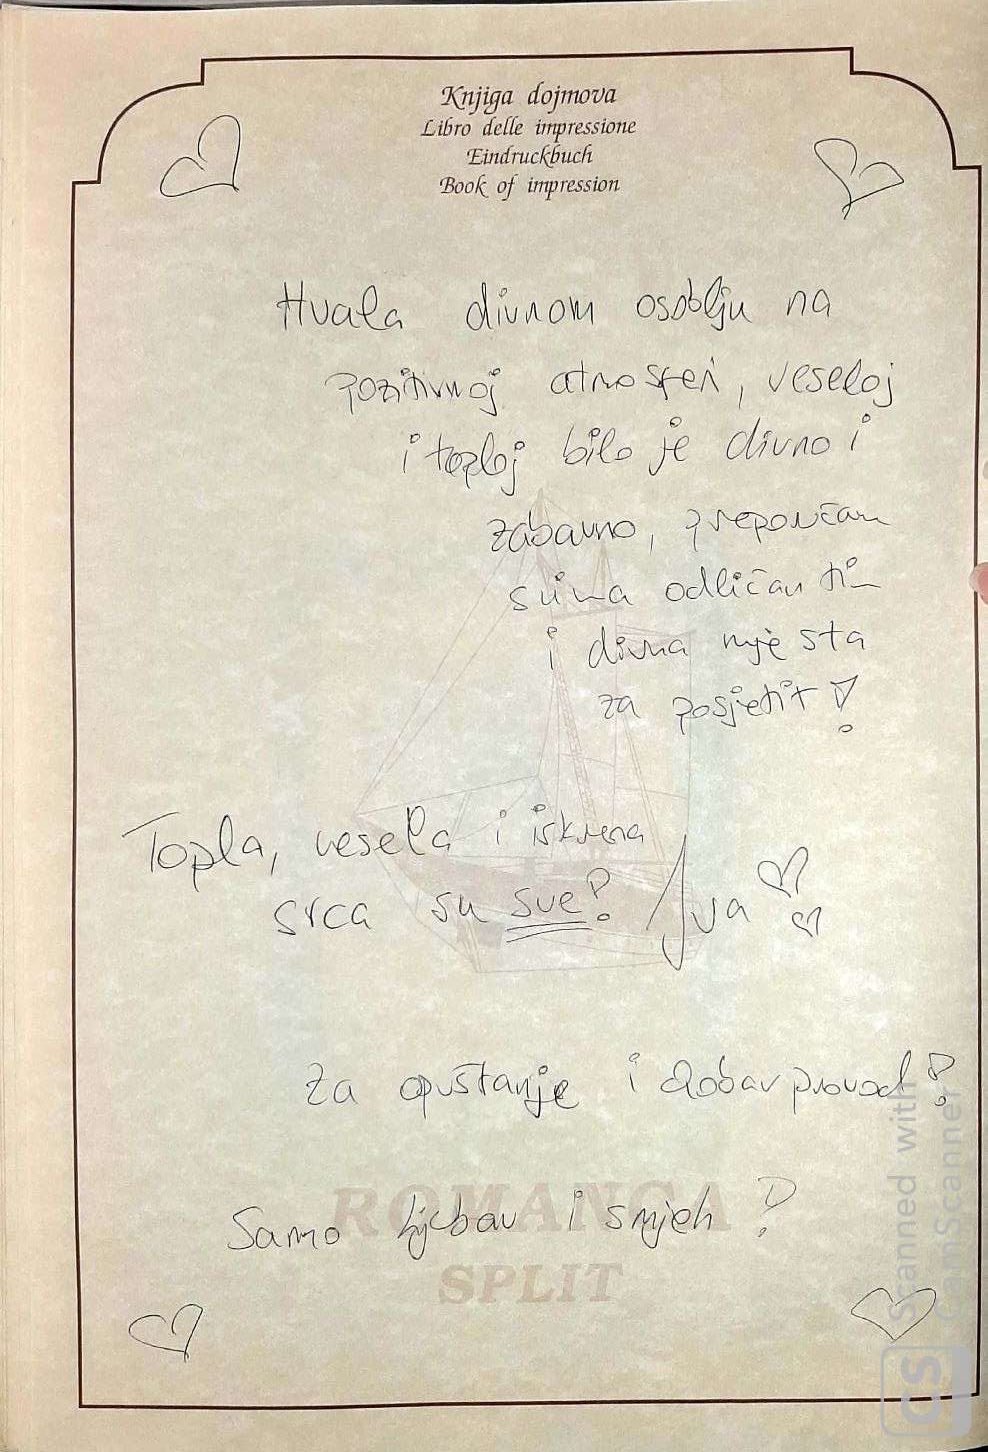 Knjiga dojmova
Libro delle impressione
Eindruckbuch
Book of impression
Hvala divnom osoblju na
pozitivnoj atmosferi, veseloj
i toploj bilo je divno i
zabavno, preporučam
svima odličan tim
i divna mjesta
za posjetit!
Topla, vesela i iskrena
srca su sve! Iva
Za opuštanje i dobar provod!
Samo ljubav i smjeh!
ROMANCA
SPLIT
Scanned with
CamScanner
CS